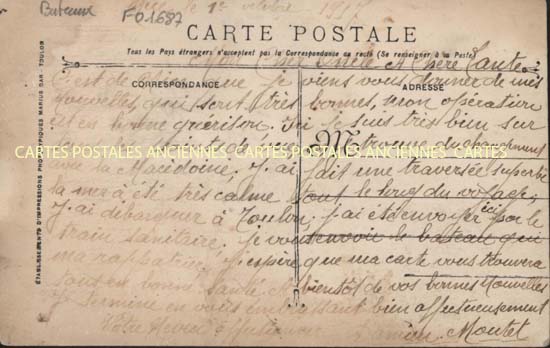 Bateaux
FO1687
1er octobre 1917
CARTE POSTALE
Tous les Pays étrangers n'acceptent pas la Correspondance au recto (Se renseigner à la Poste)
Cher Oncle et Chère Tante
CORRESPONDANCE
ADRESSE
C'est de que je viens vous donner de mes
nouvelles qui sont très bonnes, mon opération
est en bonne guérison. Ici je suis très bien sur
M
CARTES POSTALES ANCIENNES CARTES POSTALES ANCIENNES CARTES
la Macédoine, J'ai fait une traversée superbe
la mer a été très calme tout le long du voyage,
J'ai débarquer à Toulon, j'ai été envoyer ici par le
train sanitaire. je vous envoie le bateau qui
ma rapatrié j'espère que ma carte vous trouvera
tous en bonne santé. A bientôt de vos bonnes nouvelles
Je termine en vous embrassant bien affectueusement
Votre neveu Moutet
ÉTABLISSEMENTS D'IMPRESSIONS PHOTOTYPIQUES MARIUS BAR - TOULON